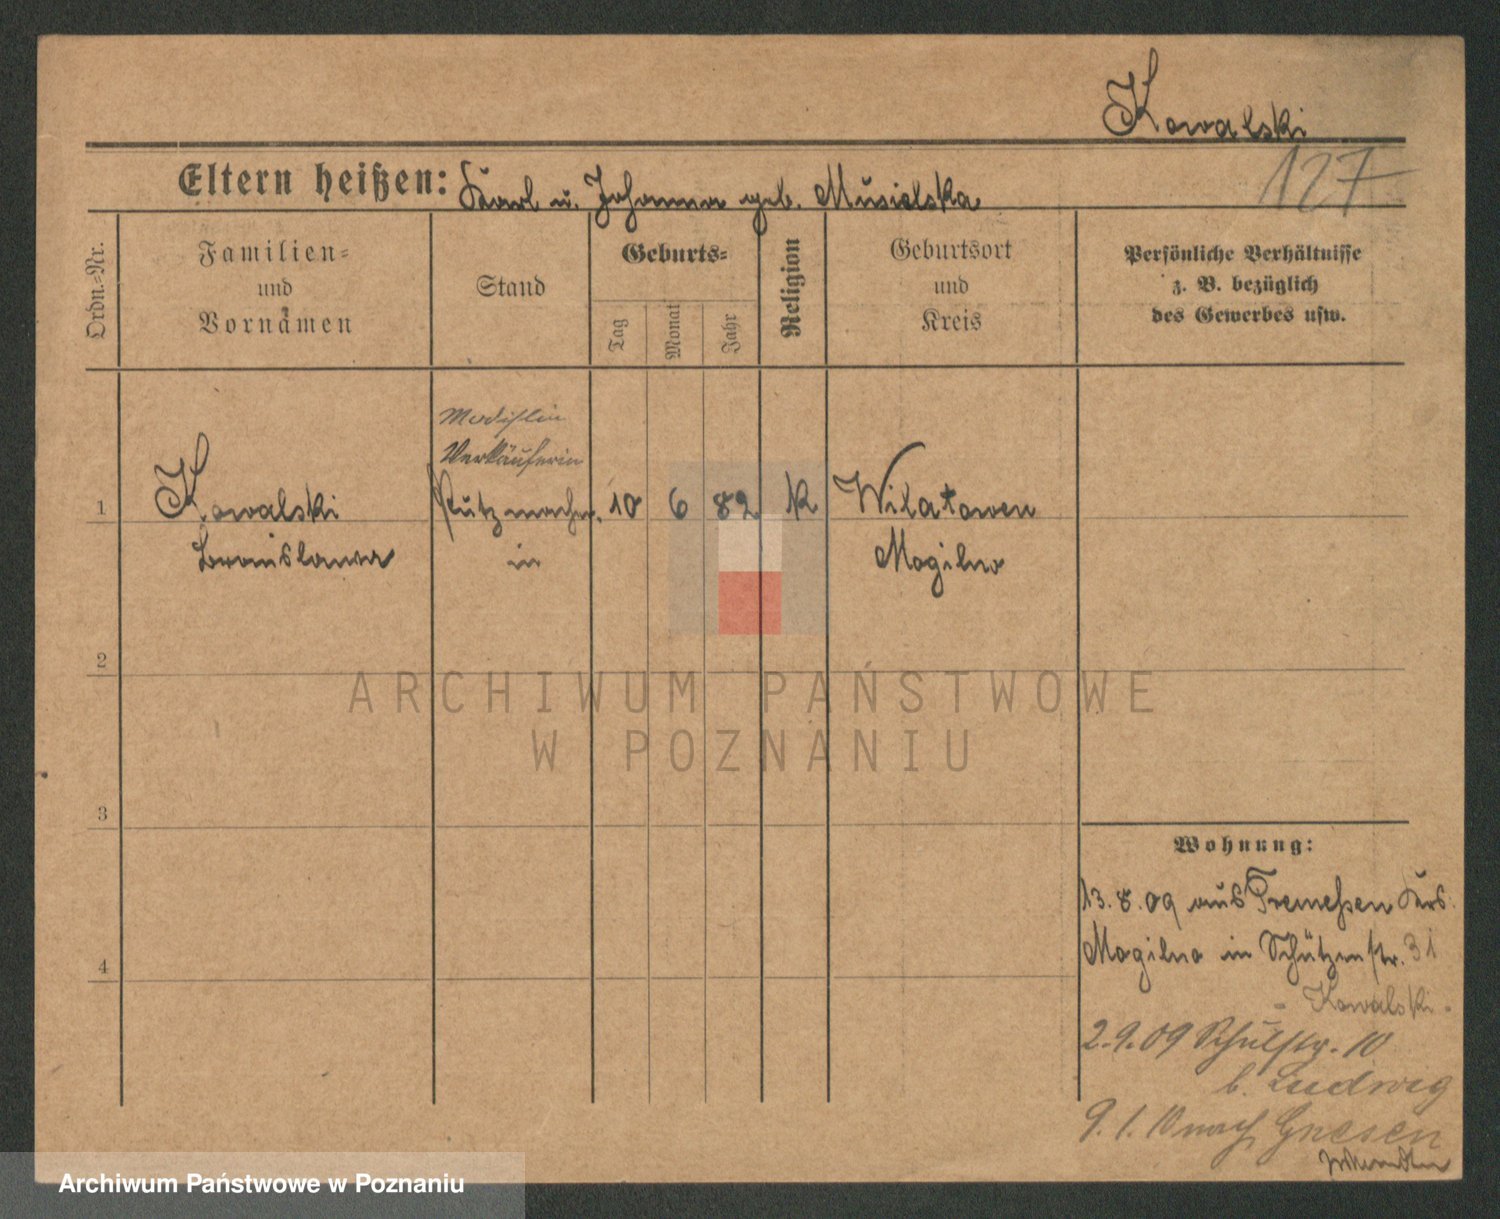 Kowalski
127
Eltern heißen: Karl u. Johanna geb. Musielska
Ordn.-Nr.
Familien-
und
Vornamen
Stand
Geburts-
Tag
Monat
Jahr
Religion
Geburtsort
und
Kreis
Persönliche Verhältnisse
z. B. bezüglich
des Gewerbes usw.
Modistin
Verkäuferin
1 Kowalski Putzmacher. 10 6 82 K Wilatowen
Bronislawa in Mogilno
2
3
4
Wohnung:
13. 8. 09 aus Tremeßen Krs.
Mogilno in Schützenstr. 31
- Kowalski -
2. 9. 09 Schulstr. 10
b. Ludwig
9. 1. 10 nach Gnesen
ARCHIWUM PAŃSTWOWE
W POZNANIU
Archiwum Państwowe w Poznaniu